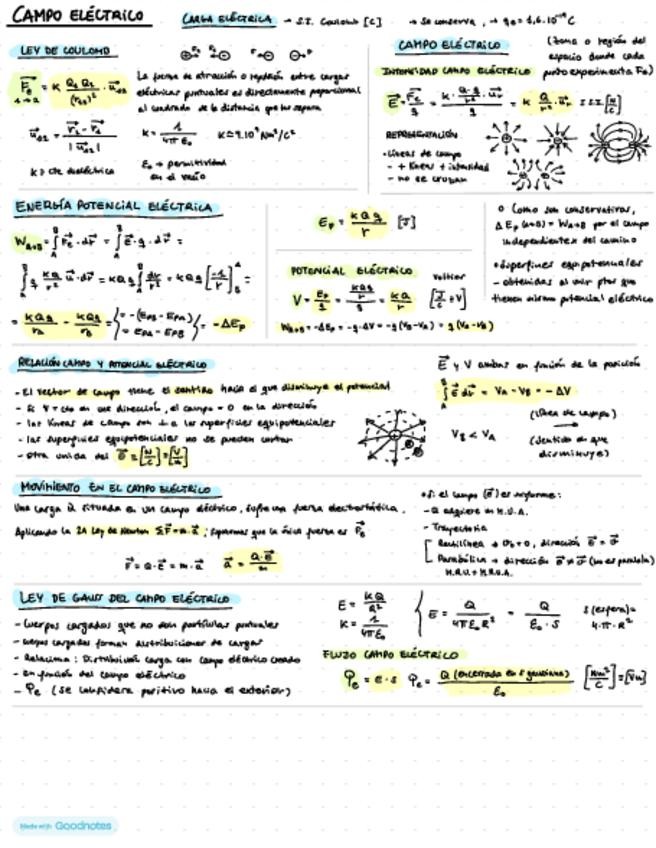 CAMPO ELÉCTRICO
CARGA ELÉCTRICA → S.I. Coulomb [C] → Se conserva, → qe = 1,6·10⁻¹⁹ C
LEY DE COULOMB
F⃗e = K Q₁ Q₂
La fuerza de atracción o repulsión entre cargas
eléctricas puntuales es directamente proporcional
al cuadrado de la distancia que las separa
K = 1 / 4π ε₀ K = 9·10⁹ Nm²/C²
K → cte dieléctrica
ε₀ → permitividad
en el vacío
CAMPO ELÉCTRICO
(zona o región del
espacio donde cada
punto experimenta Fe)
INTENSIDAD CAMPO ELÉCTRICO
REPRESENTACIÓN
· Líneas de campo
- + líneas + intensidad
- no se cruzan
ENERGÍA POTENCIAL ELÉCTRICA
= KQq / rA - KQq / rB = { = -(EPB - EPA) = EPA - EPB } = -ΔEp
Ep = KQq / r [J]
POTENCIAL ELÉCTRICO
voltios
V = Ep / q = KQ / r [J/C = V]
WA→B = -ΔEp = -q·ΔV = -q(VB-VA) = q(VA-VB)
Como son conservativas,
ΔEp (A→B) = WA→B por el campo
independientes del camino
· Superficies equipotenciales
- obtenidas al unir ptos que
tienen mismo potencial eléctrico
RELACIÓN CAMPO Y POTENCIAL ELÉCTRICO
- El vector de campo tiene el sentido hacia el que disminuye el potencial
- Si V = cte en una dirección, el campo = 0 en la dirección
- las líneas de campo son ⊥ a las superficies equipotenciales
- las superficies equipotenciales no se pueden cortar
- otra unidad del E⃗ = [N/C] = [V/m]
E⃗ y V ambas en función de la posición
∫ E⃗ dr⃗ = VA - VB = -ΔV
VB < VA
(línea de campo)
(sentido en que
disminuye)
MOVIMIENTO EN EL CAMPO ELÉCTRICO
Una carga Q situada en un campo eléctrico, sufre una fuerza electrostática.
Aplicando la 2A Ley de Newton ΣF⃗ = m·a⃗; suponemos que la única fuerza es F⃗e
F⃗ = Q·E⃗ = m·a⃗ a⃗ = Q·E⃗ / m
· Si el campo (E⃗) es uniforme:
- Q adquiere M.R.U.A.
- Trayectoria
Rectilínea → v₀ = 0, dirección E⃗ = v⃗
Parabólica → dirección E⃗ ≠ v⃗ (no es paralela)
M.R.U + M.R.U.A.
LEY DE GAUSS DEL CAMPO ELÉCTRICO
- Cuerpos cargados que no son partículas puntuales
- cuerpos cargados forman distribuciones de cargas
- Relaciona: Distribución carga con campo eléctrico creado
- en función del campo eléctrico
- φe (se considera positivo hacia el exterior)
E = KQ / R²
K = 1 / 4πε₀
E = Q / 4πε₀R² = Q / ε₀·S
S (esfera) =
4·π·R²
FLUJO CAMPO ELÉCTRICO
φe = E·S φe = Q (encerrada en S gaussiana) / ε₀ [Nm²/C] = [Vm]
Made with Goodnotes